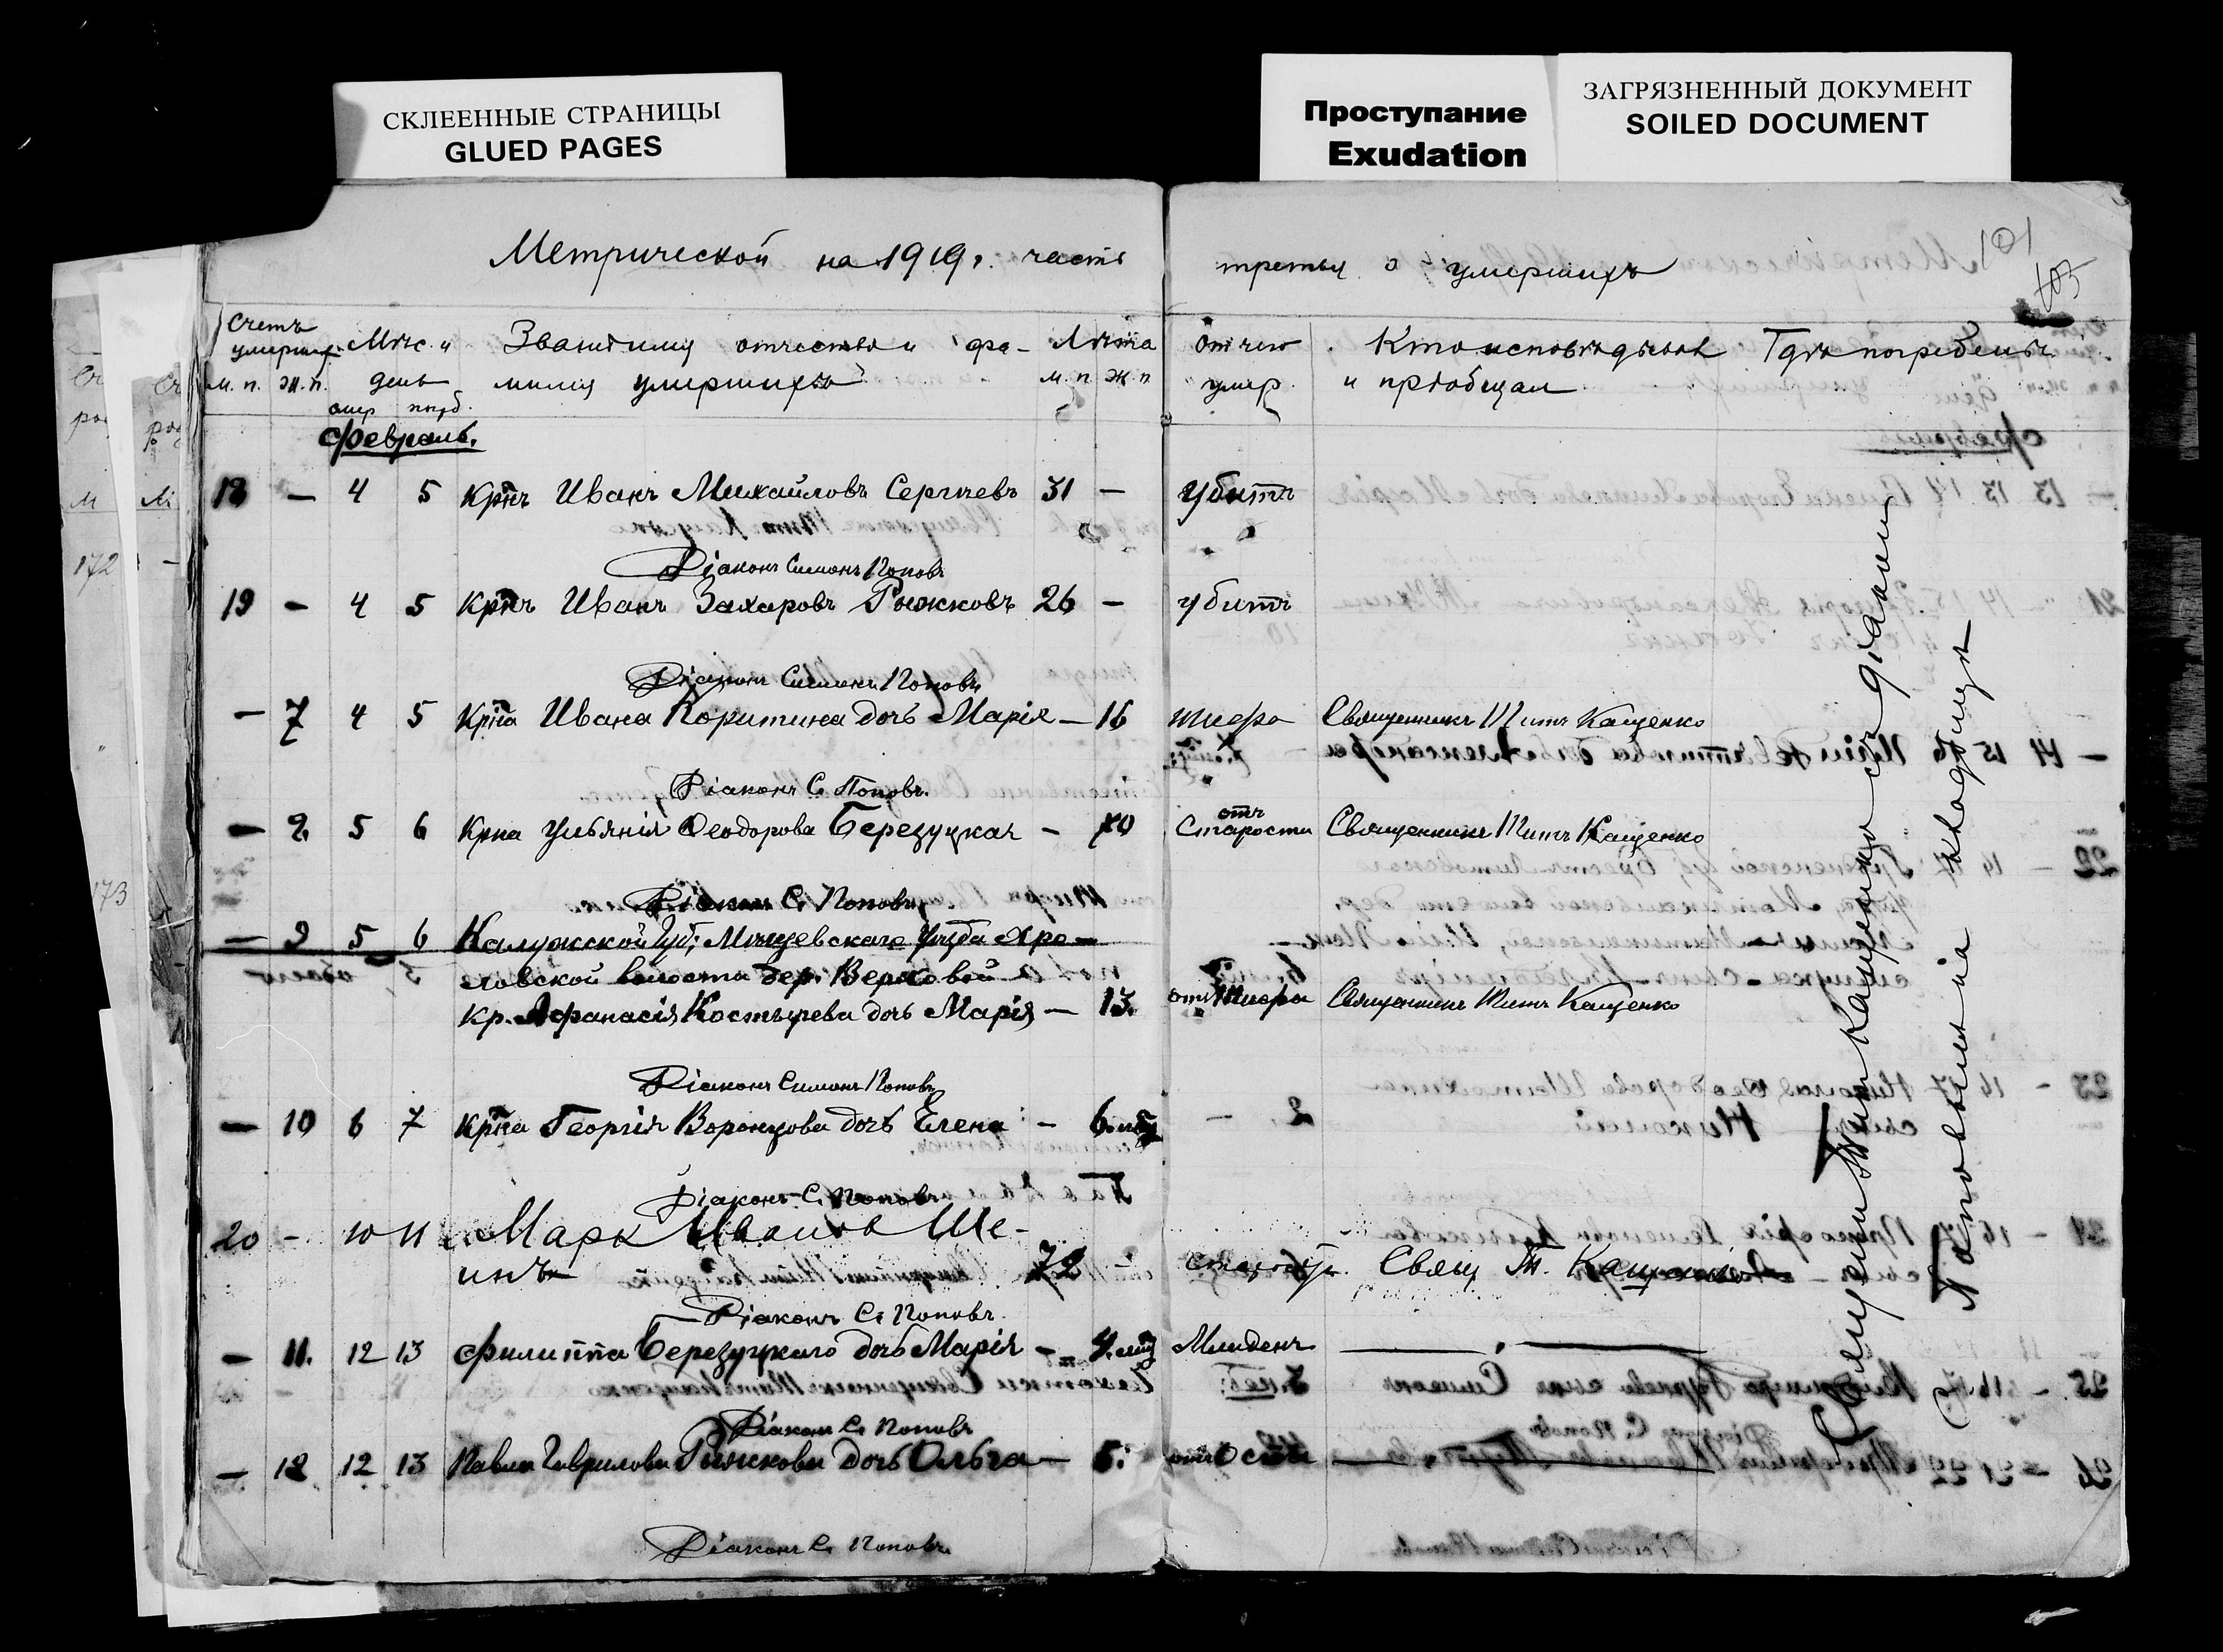 СКЛЕЕННЫЕ СТРАНИЦЫ
GLUED PAGES
Проступание
Exudation
ЗАГРЯЗНЕННЫЙ ДОКУМЕНТ
SOILED DOCUMENT
Метрической на 1919 г. часть третья о умершихъ
101
105
Счетъ умерш. м. п. ж. п.
Мѣс. и день умер. погр.
Званіе имя отчество и фамилия умершихъ
Лѣта м. п. ж. п.
Отчего умер.
Кто исповѣдывал и пріобщал
Гдѣ погребены
Февраль.
18 — 4 5 Крнъ Иванъ Михайловъ Сергѣевъ 31 — убитъ
Діаконъ Симонъ Поповъ
19 — 4 5 Крнъ Иванъ Захаровъ Рыжковъ 26 — убитъ
Діаконъ Симонъ Поповъ
— 7 4 5 Крна Ивана Коритина дочь Марія — 16 тифа Священникъ Титъ Кащенко
Діаконъ С. Поповъ.
— 2. 5 6 Крна Ульянія Феодорова Березуцкая — 70 отъ старости Священникъ Титъ Кащенко
Діаконъ С. Поповъ
— 9 5 6 Калужской Губ; Мещевскаго Уѣзда Хро—
ловской волости дер. Верховой
Кр. Афанасія Костырева дочь Марія — 13. отъ тифа Священникъ Титъ Кащенко
Діаконъ Симонъ Поповъ
— 10 6 7 Крна Георгія Воронцова дочь Елена — 6.
Діаконъ С. Поповъ
20 — 10 11 Марк Иванов Ше-
инъ 72 — Свящ Т. Кащенко
Діаконъ С. Поповъ
— 11. 12 13 Филиппа Березуцкаго дочь Марія — 4. Младенъ —
Діаконъ С. Поповъ
— 12 12 13 Павла Гаврилова Рыжкова дочь Ольга — 5. отъ Оспы —
Діаконъ С. Поповъ
Священ Титъ Кащенко съ діакон
С Поповым на кладбищѣ
172
173